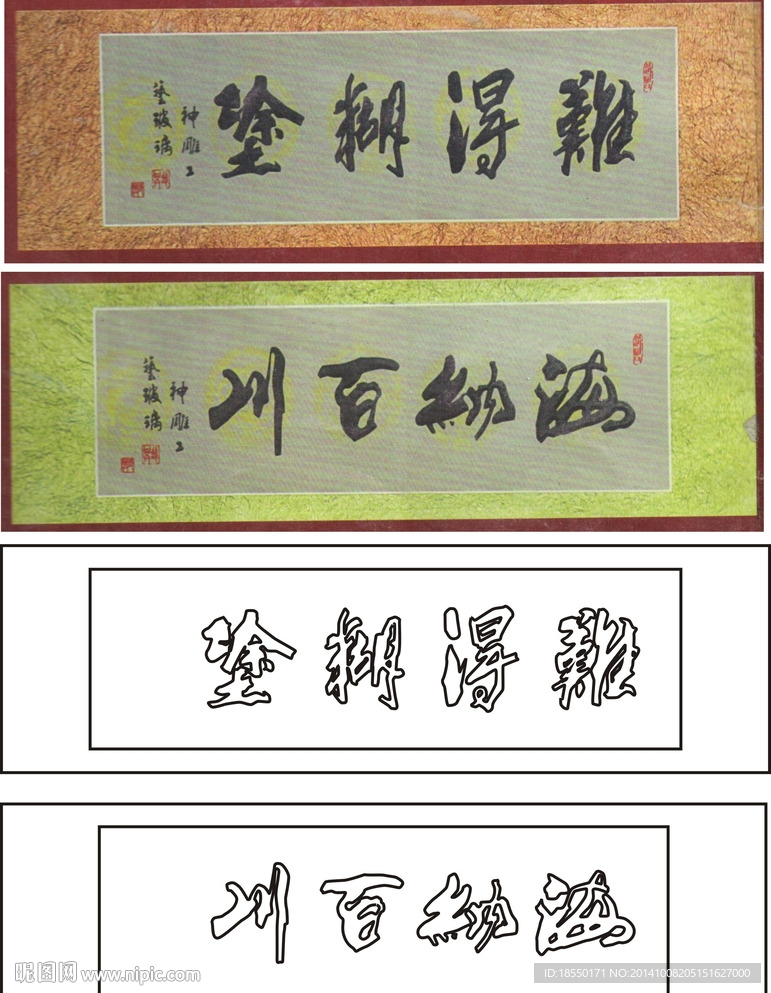 難得糊塗
神雕工
藝玻璃
海納百川
神雕工
藝玻璃
難得糊塗
海納百川
昵图网 www.nipic.com
ID:18550171 NO:20141008205151627000